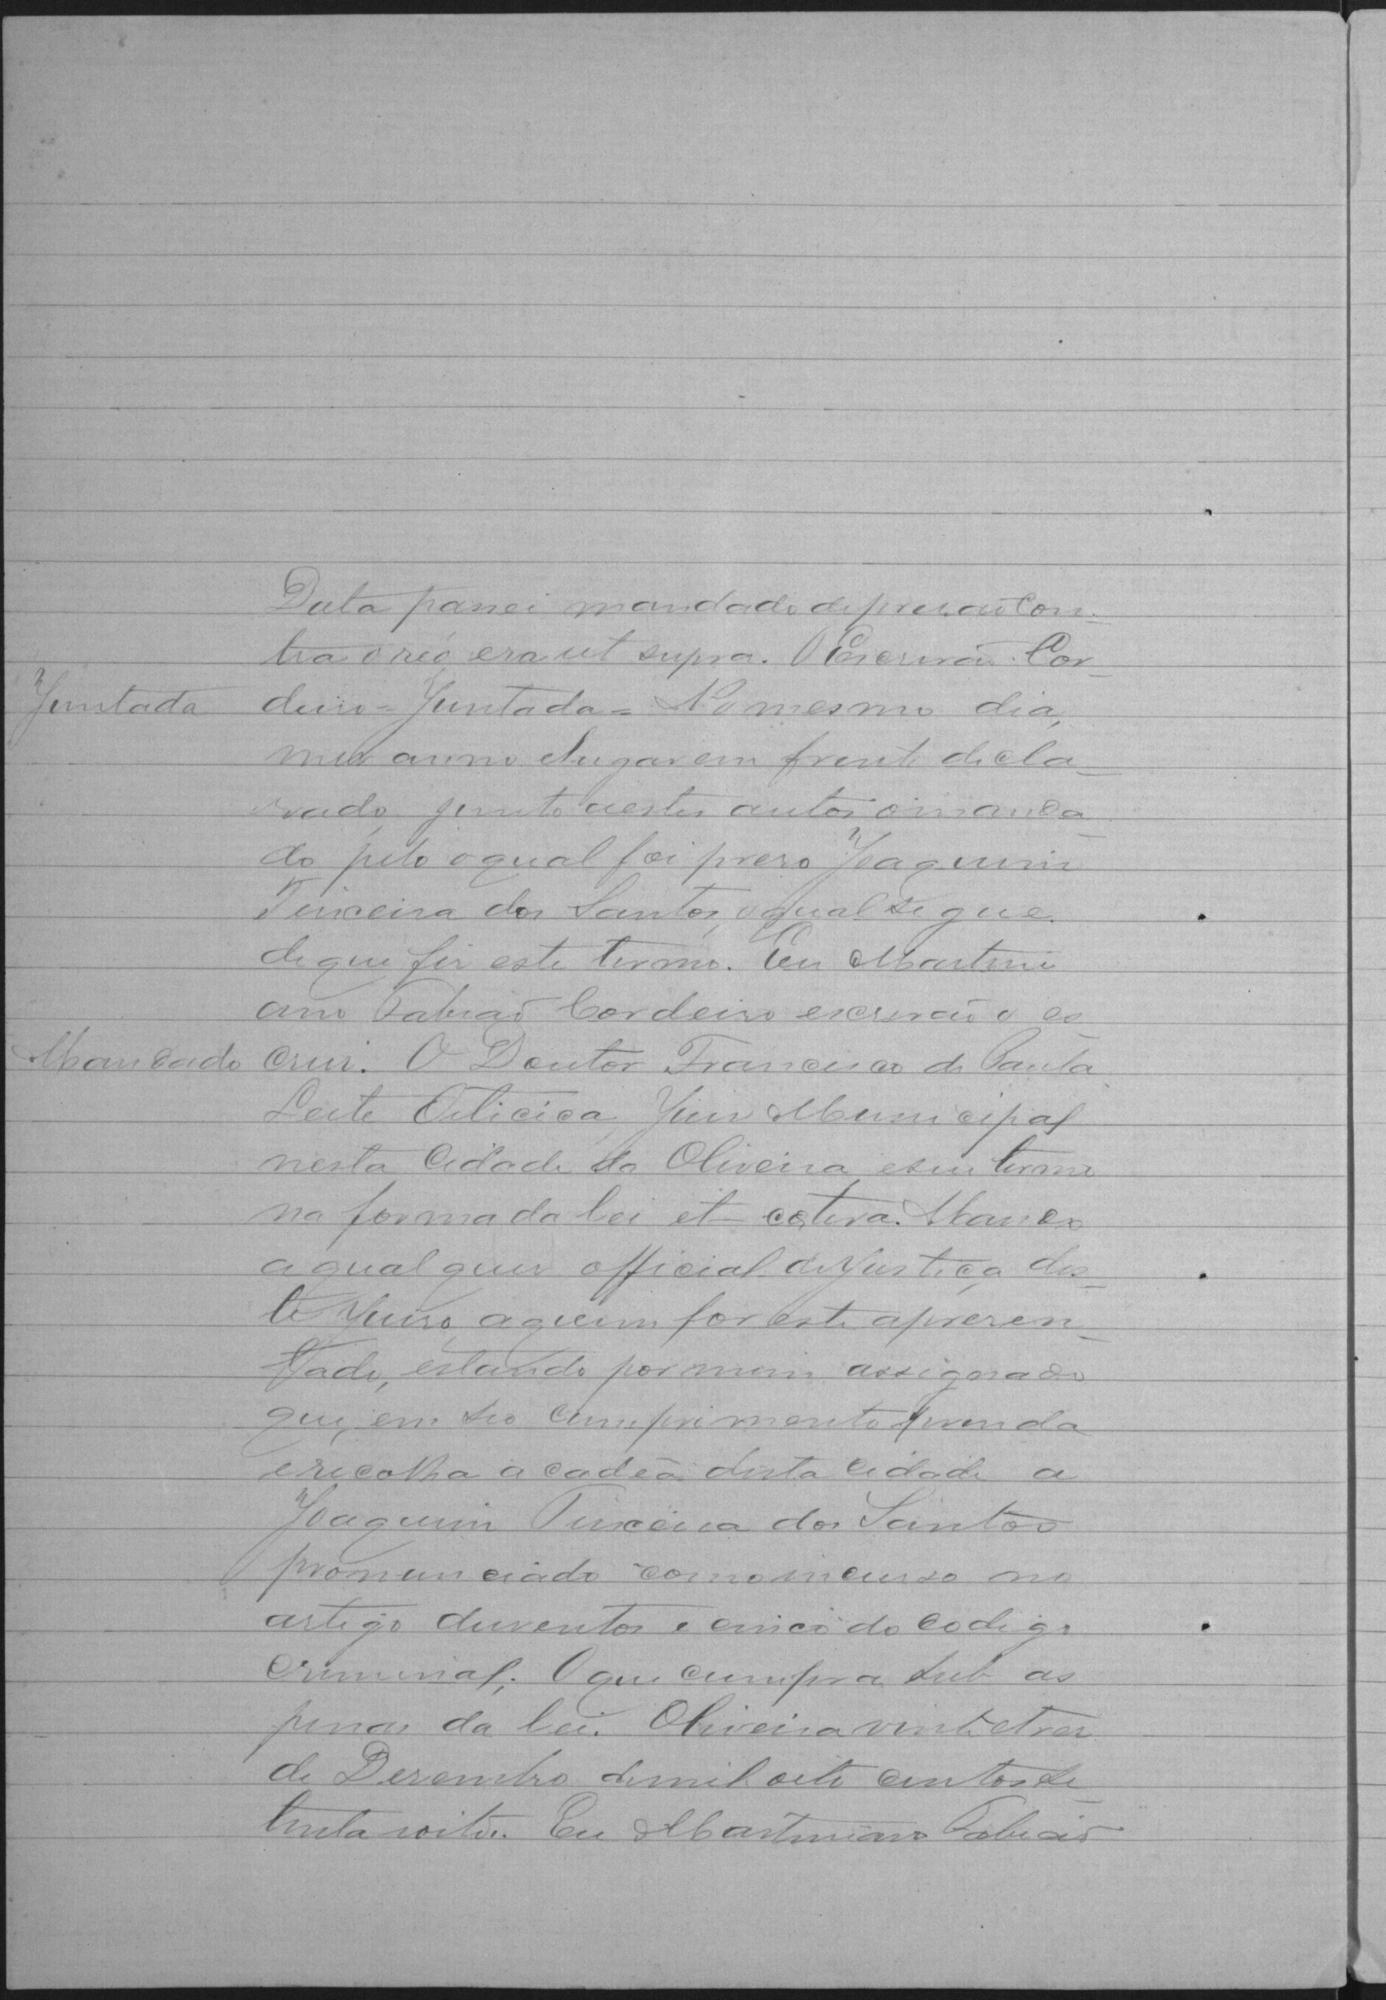 Data passei mandado de prisão con-
tra o reó era ut supra. O Escrivão Cor-
Juntada
deiro = Juntada = No mesmo dia,
mes anno e lugar em frente decla-
rado, junto a estes autos o manda-
do pelo o qual foi preso Joaquim
Teixeira dos Santos, o qual se segue.
de que fiz este termo. Eu Martini
ano Fabião Cordeiro escrivão o es-
Mandado
crivi. O Doutor Francisco de Paula
Leite Oiticica, Juiz Municipal
nesta Cidade da Oliveira e seu termo
na forma da lei et cetera. Mando
a qual quer official de Justiça, des-
te Juiso, a quem for este apresen-
tado, estando por mim assignado
que, em seo cumprimento prenda
e recolha a cadeia desta cidade a
Joaquim Teixeira dos Santos
pronunciado como incurso no
artigo duzentos e cinco do codigo
criminal; O que cumpra sub as
penas da lei. Oliveira vinte e tres
de Dezembro de mil oito centos se-
tenta e oito. Eu Martiniano Fabião